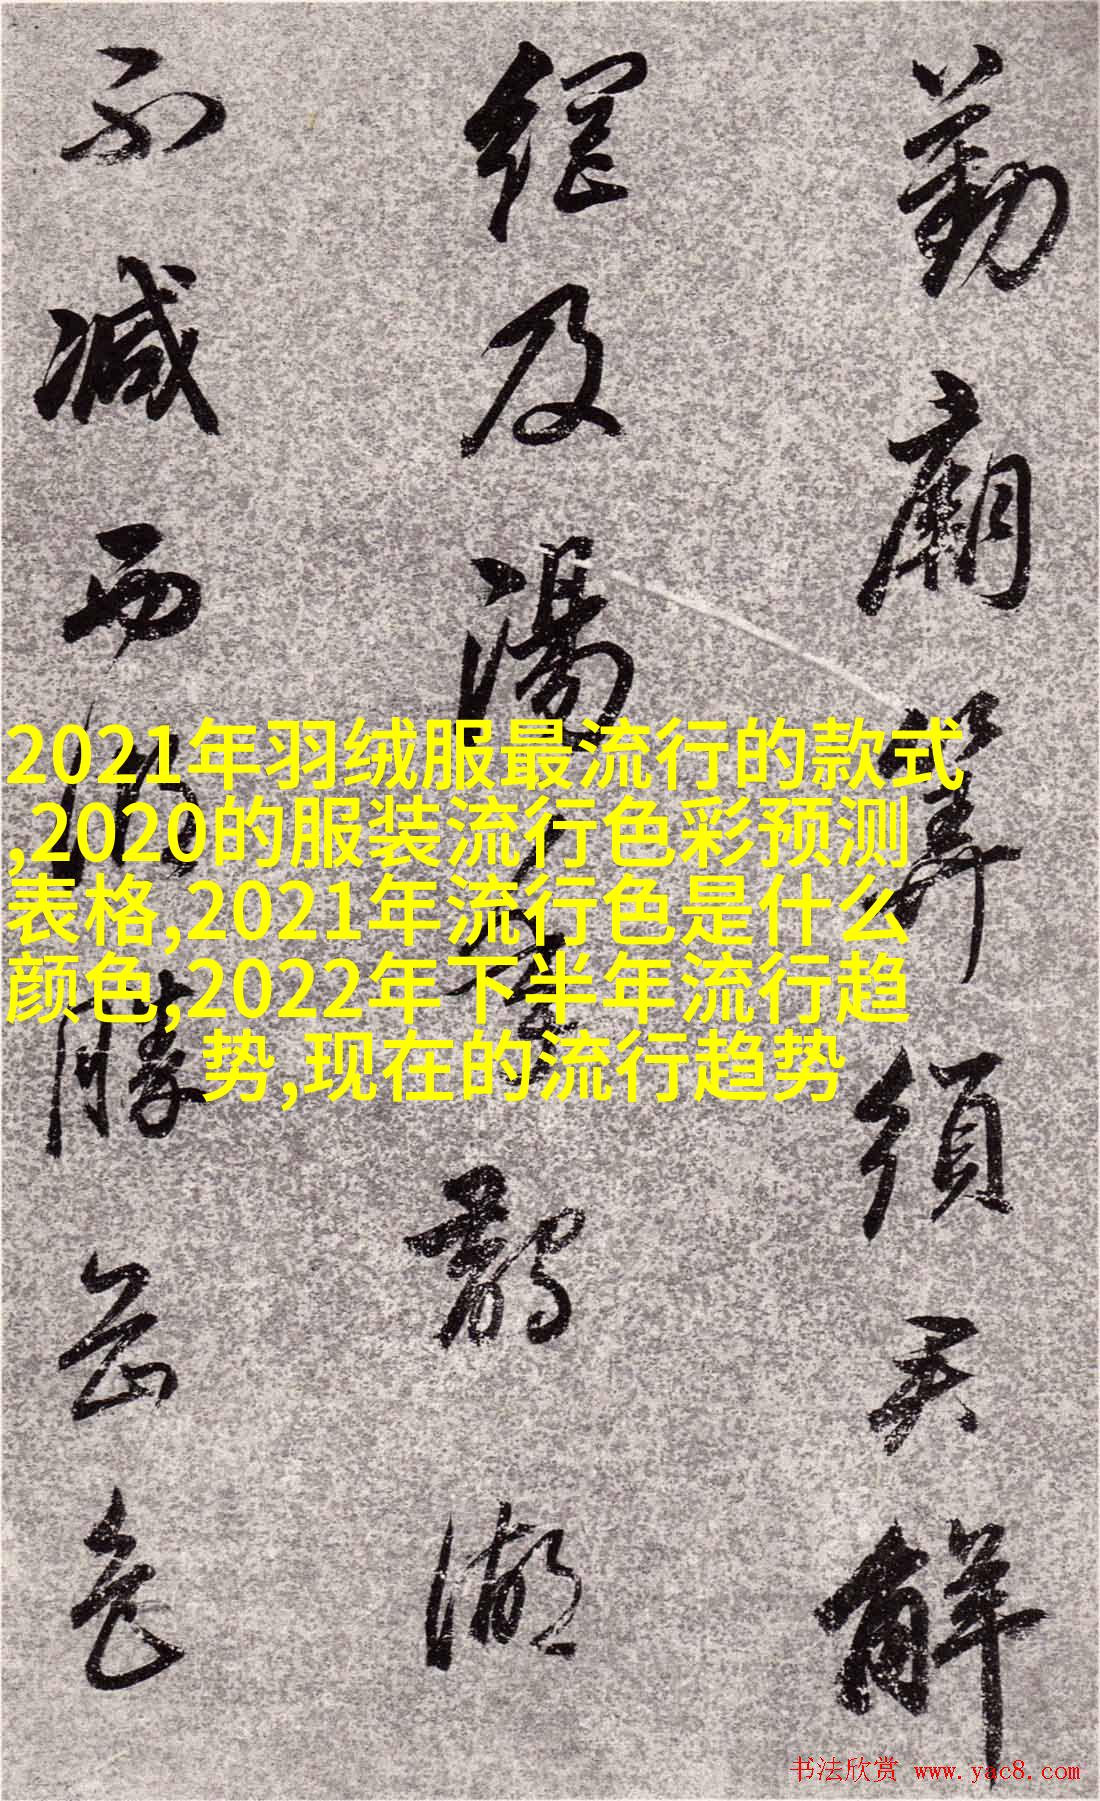 勤廟算須解
及湯鵲湖
不減西勝
2021年羽绒服最流行的款式
,2020的服装流行色彩预测
表格,2021年流行色是什么
颜色,2022年下半年流行趋
势,现在的流行趋势
书法欣赏 www.yac8.com